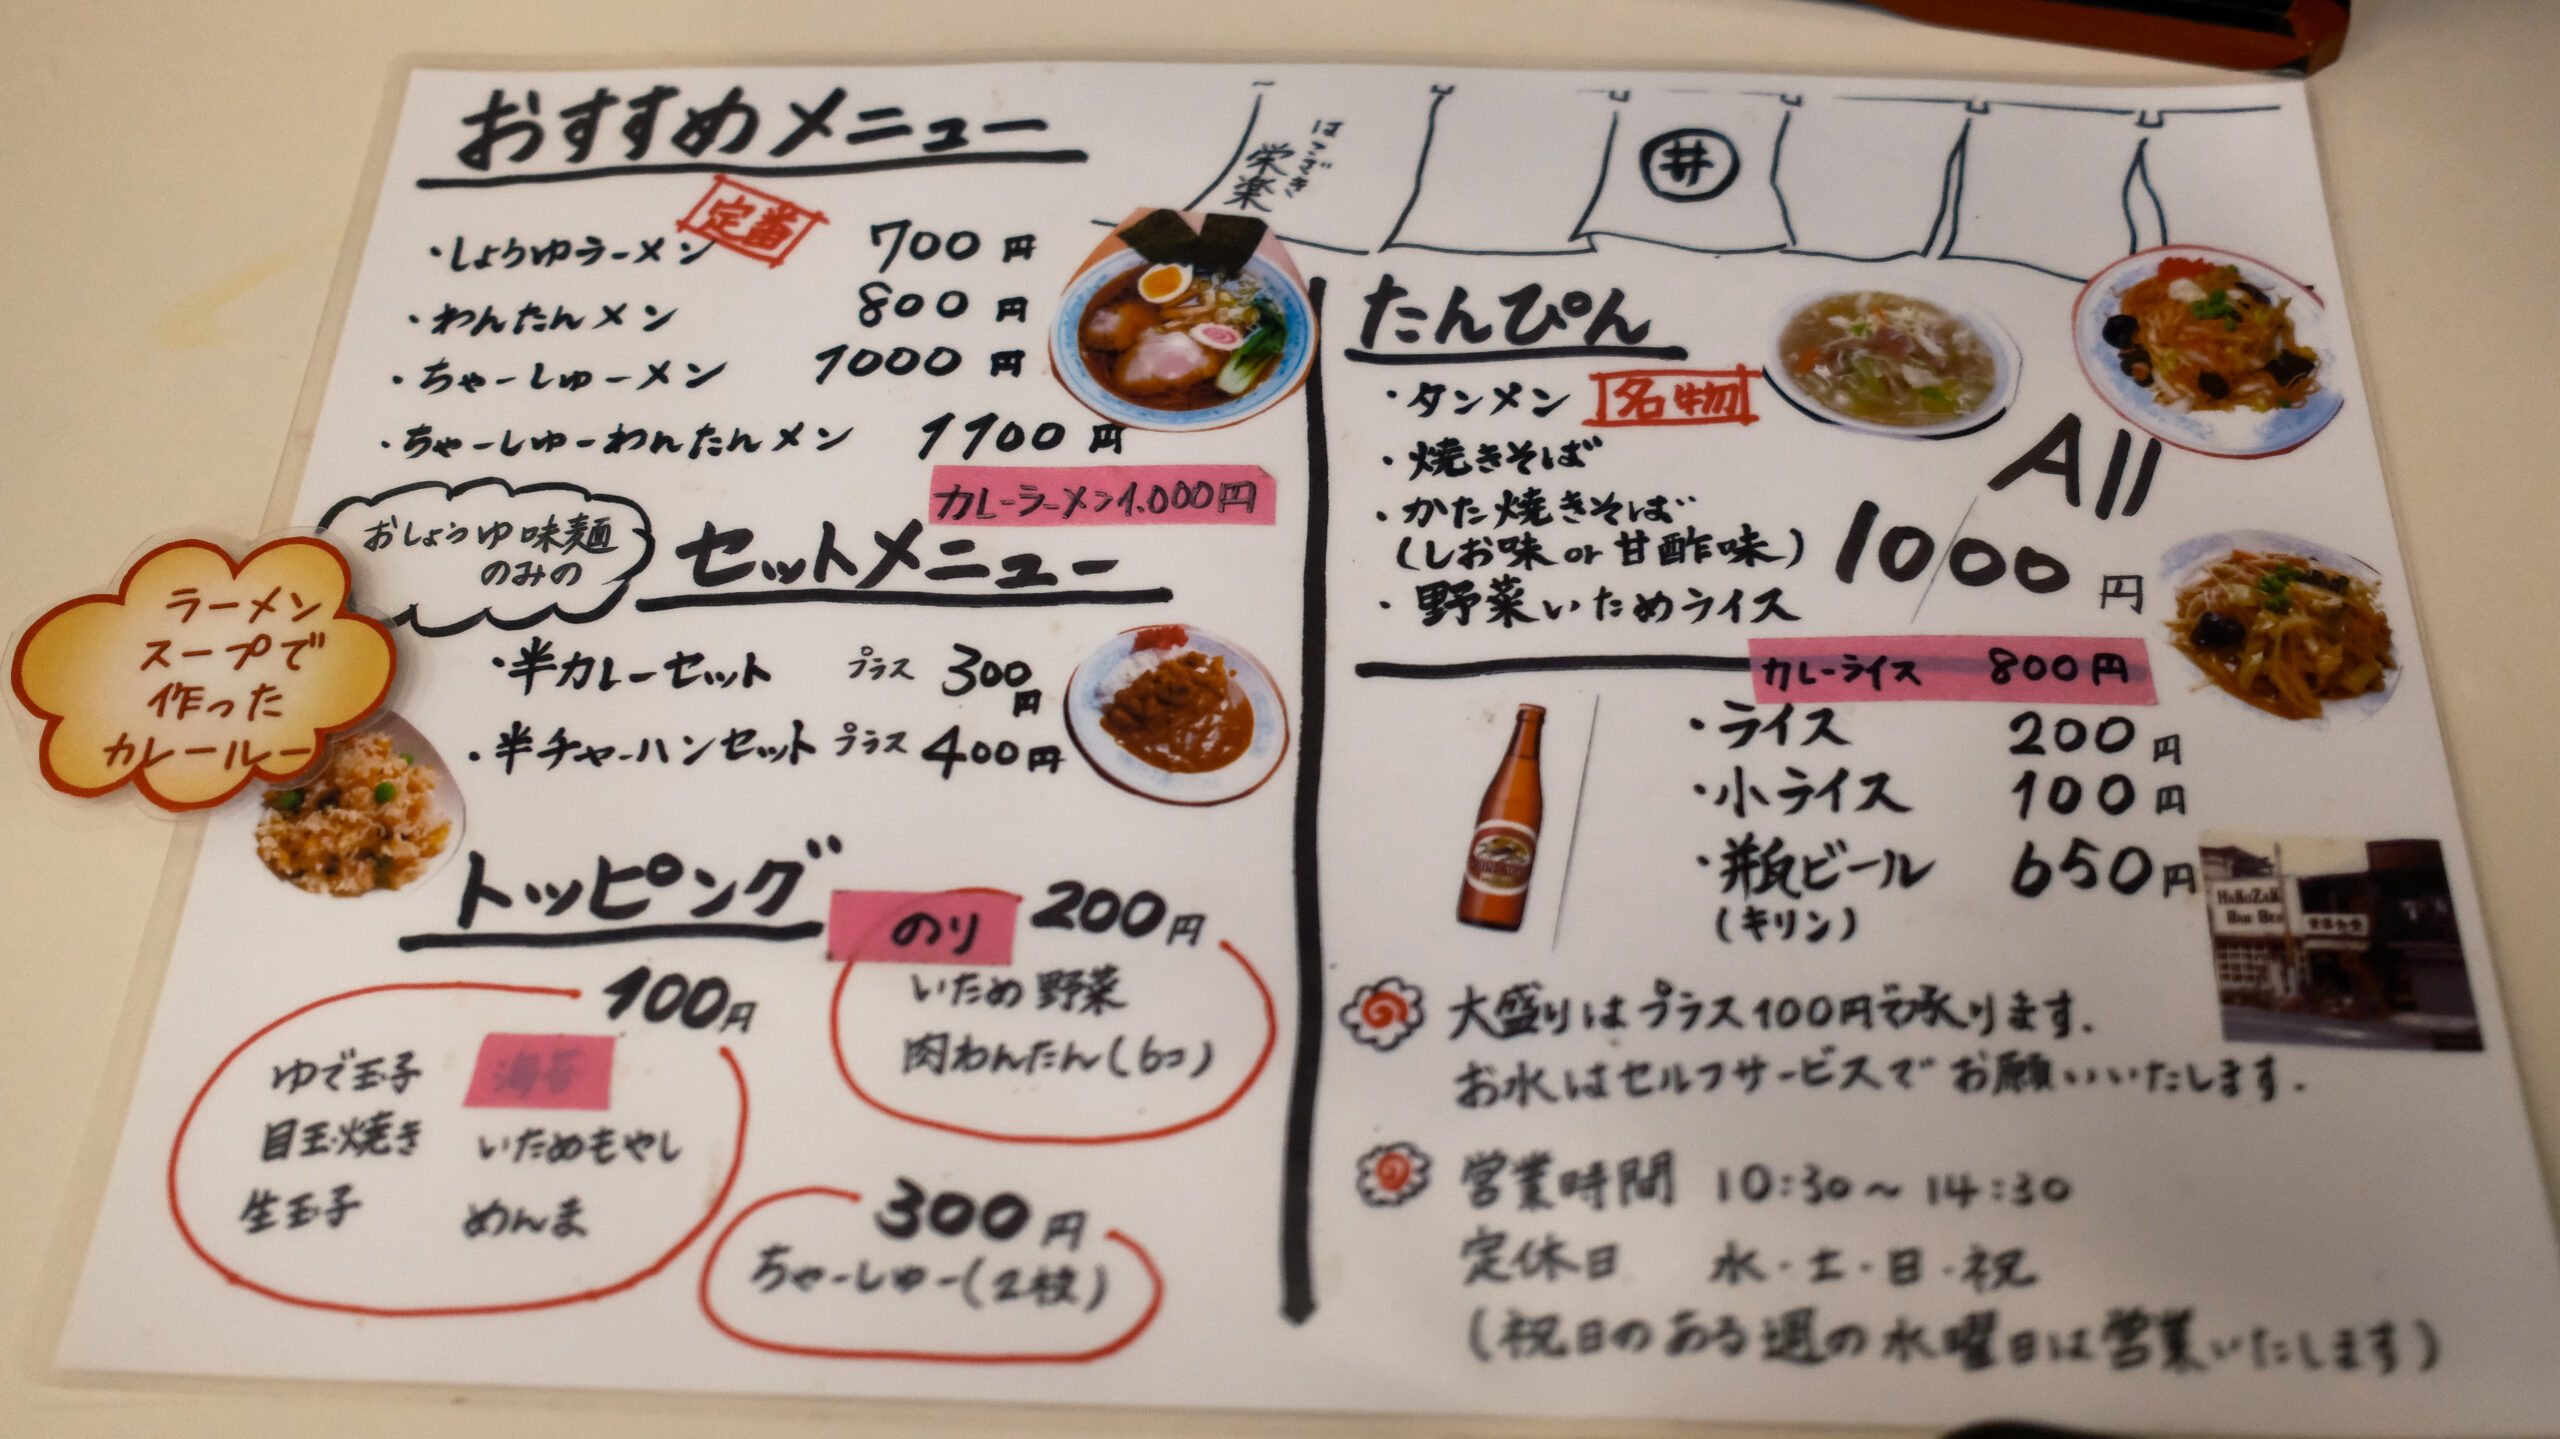 おすすめメニュー
定番
・しょうゆラーメン 700円
・わんたんメン 800円
・ちゃーしゅーメン 1000円
・ちゃーしゅーわんたんメン 1100円
カレーラーメン1.000円
おしょうゆ味麺
のみの
セットメニュー
ラーメン
スープで
作った
カレールー
・半カレーセット プラス 300円
・半チャーハンセット プラス 400円
トッピング
100円
ゆで玉子 海苔
目玉焼き いためもやし
生玉子 めんま
のり 200円
いため野菜
肉わんたん(6コ)
300円
ちゃーしゅー(2枚)
はこざき
栄楽
井
たんぴん
・タンメン 名物
・焼きそば
・かた焼きそば
(しお味 or 甘酢味)
・野菜いためライス
All
1000円
カレーライス 800円
・ライス 200円
・小ライス 100円
・瓶ビール 650円
(キリン)
大盛りはプラス100円で承ります.
お水はセルフサービスでお願いいたします.
営業時間 10:30~14:30
定休日 水・土・日・祝
(祝日のある週の水曜日は営業いたします)